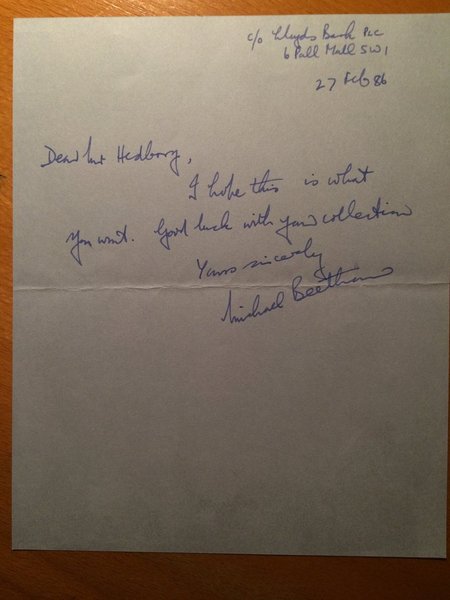 c/o Lloyds Bank PLC
6 Pall Mall SW1
27 Feb 86
Dear Mr Hedborg,
I hope this is what
you want. Good luck with your collection
Yours sincerely
Michael Beetham